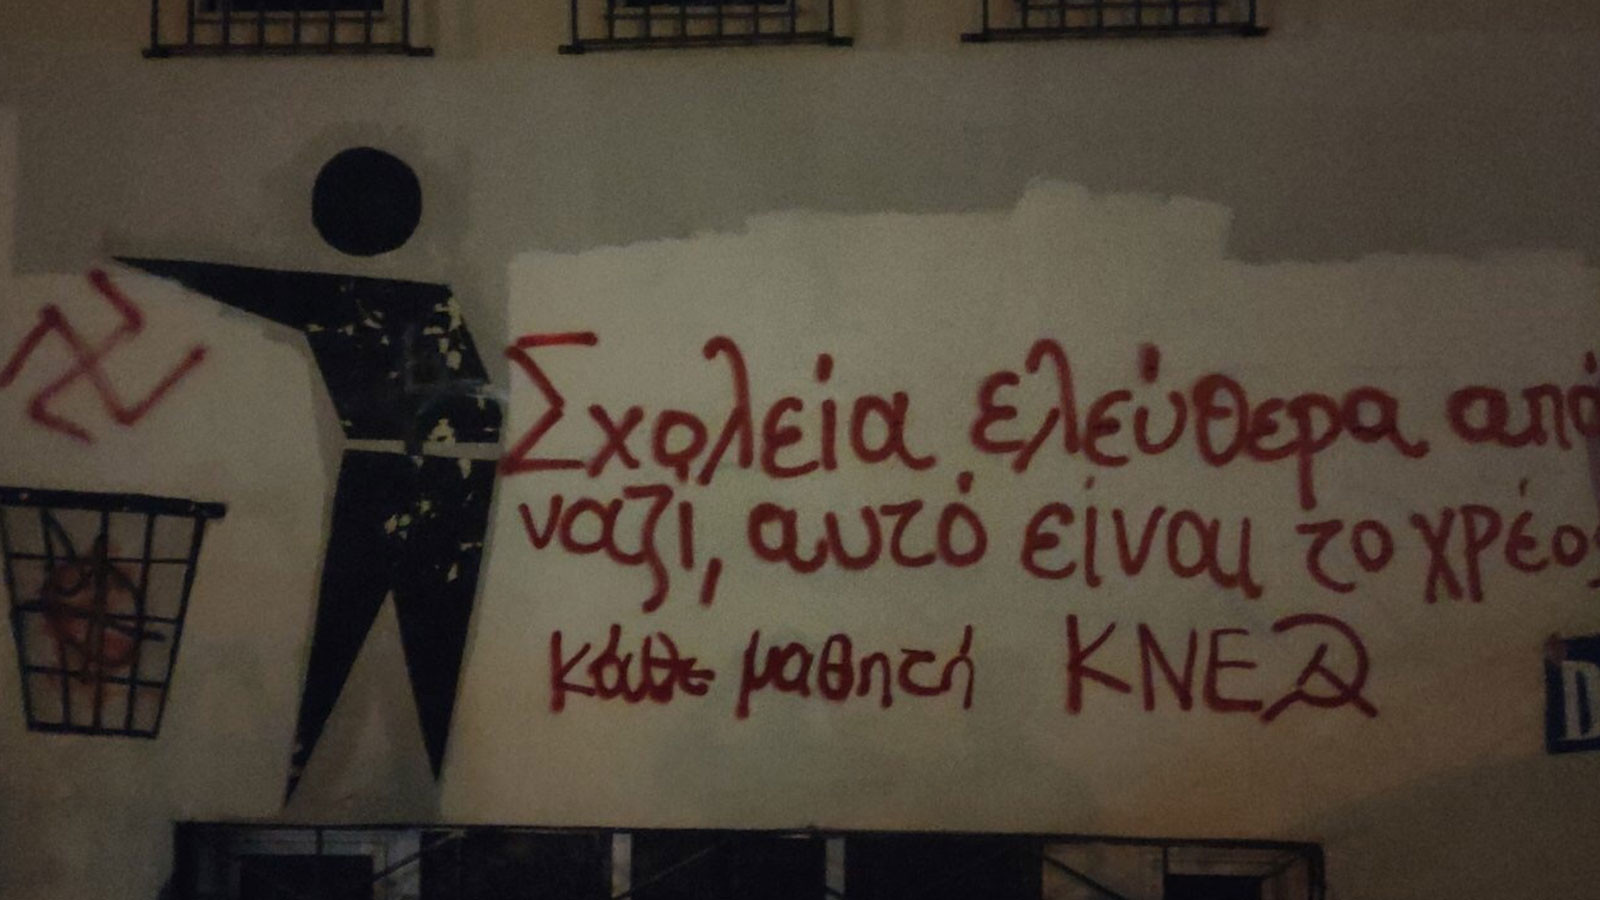 Σχολεία ελεύθερα από
ναζί, αυτό είναι το χρέος
κάθε μαθητή ΚΝΕ
D